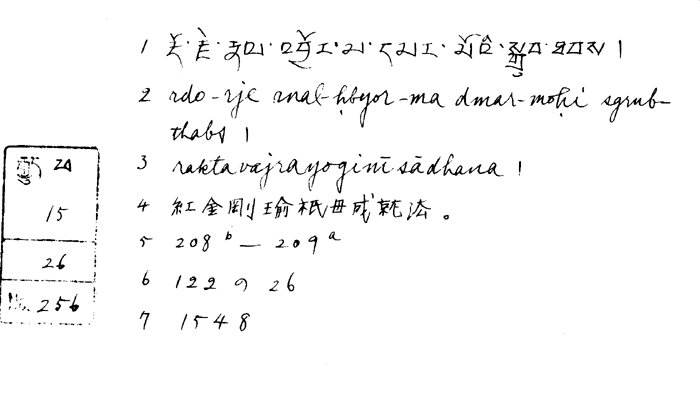 1 རྡོ་རྗེ་རྣལ་འབྱོར་མ་དམར་མོའི་སྒྲུབ་ཐབས །
2 rdo-rje rnal-ḥbyor-ma dmar-moḥi sgrub-
thabs |
3 raktavajrayoginīsādhana |
4 紅金剛瑜祇母成就法。
5 208 b — 209 a
6 122 の 26
7 1548
15
26
No. 256